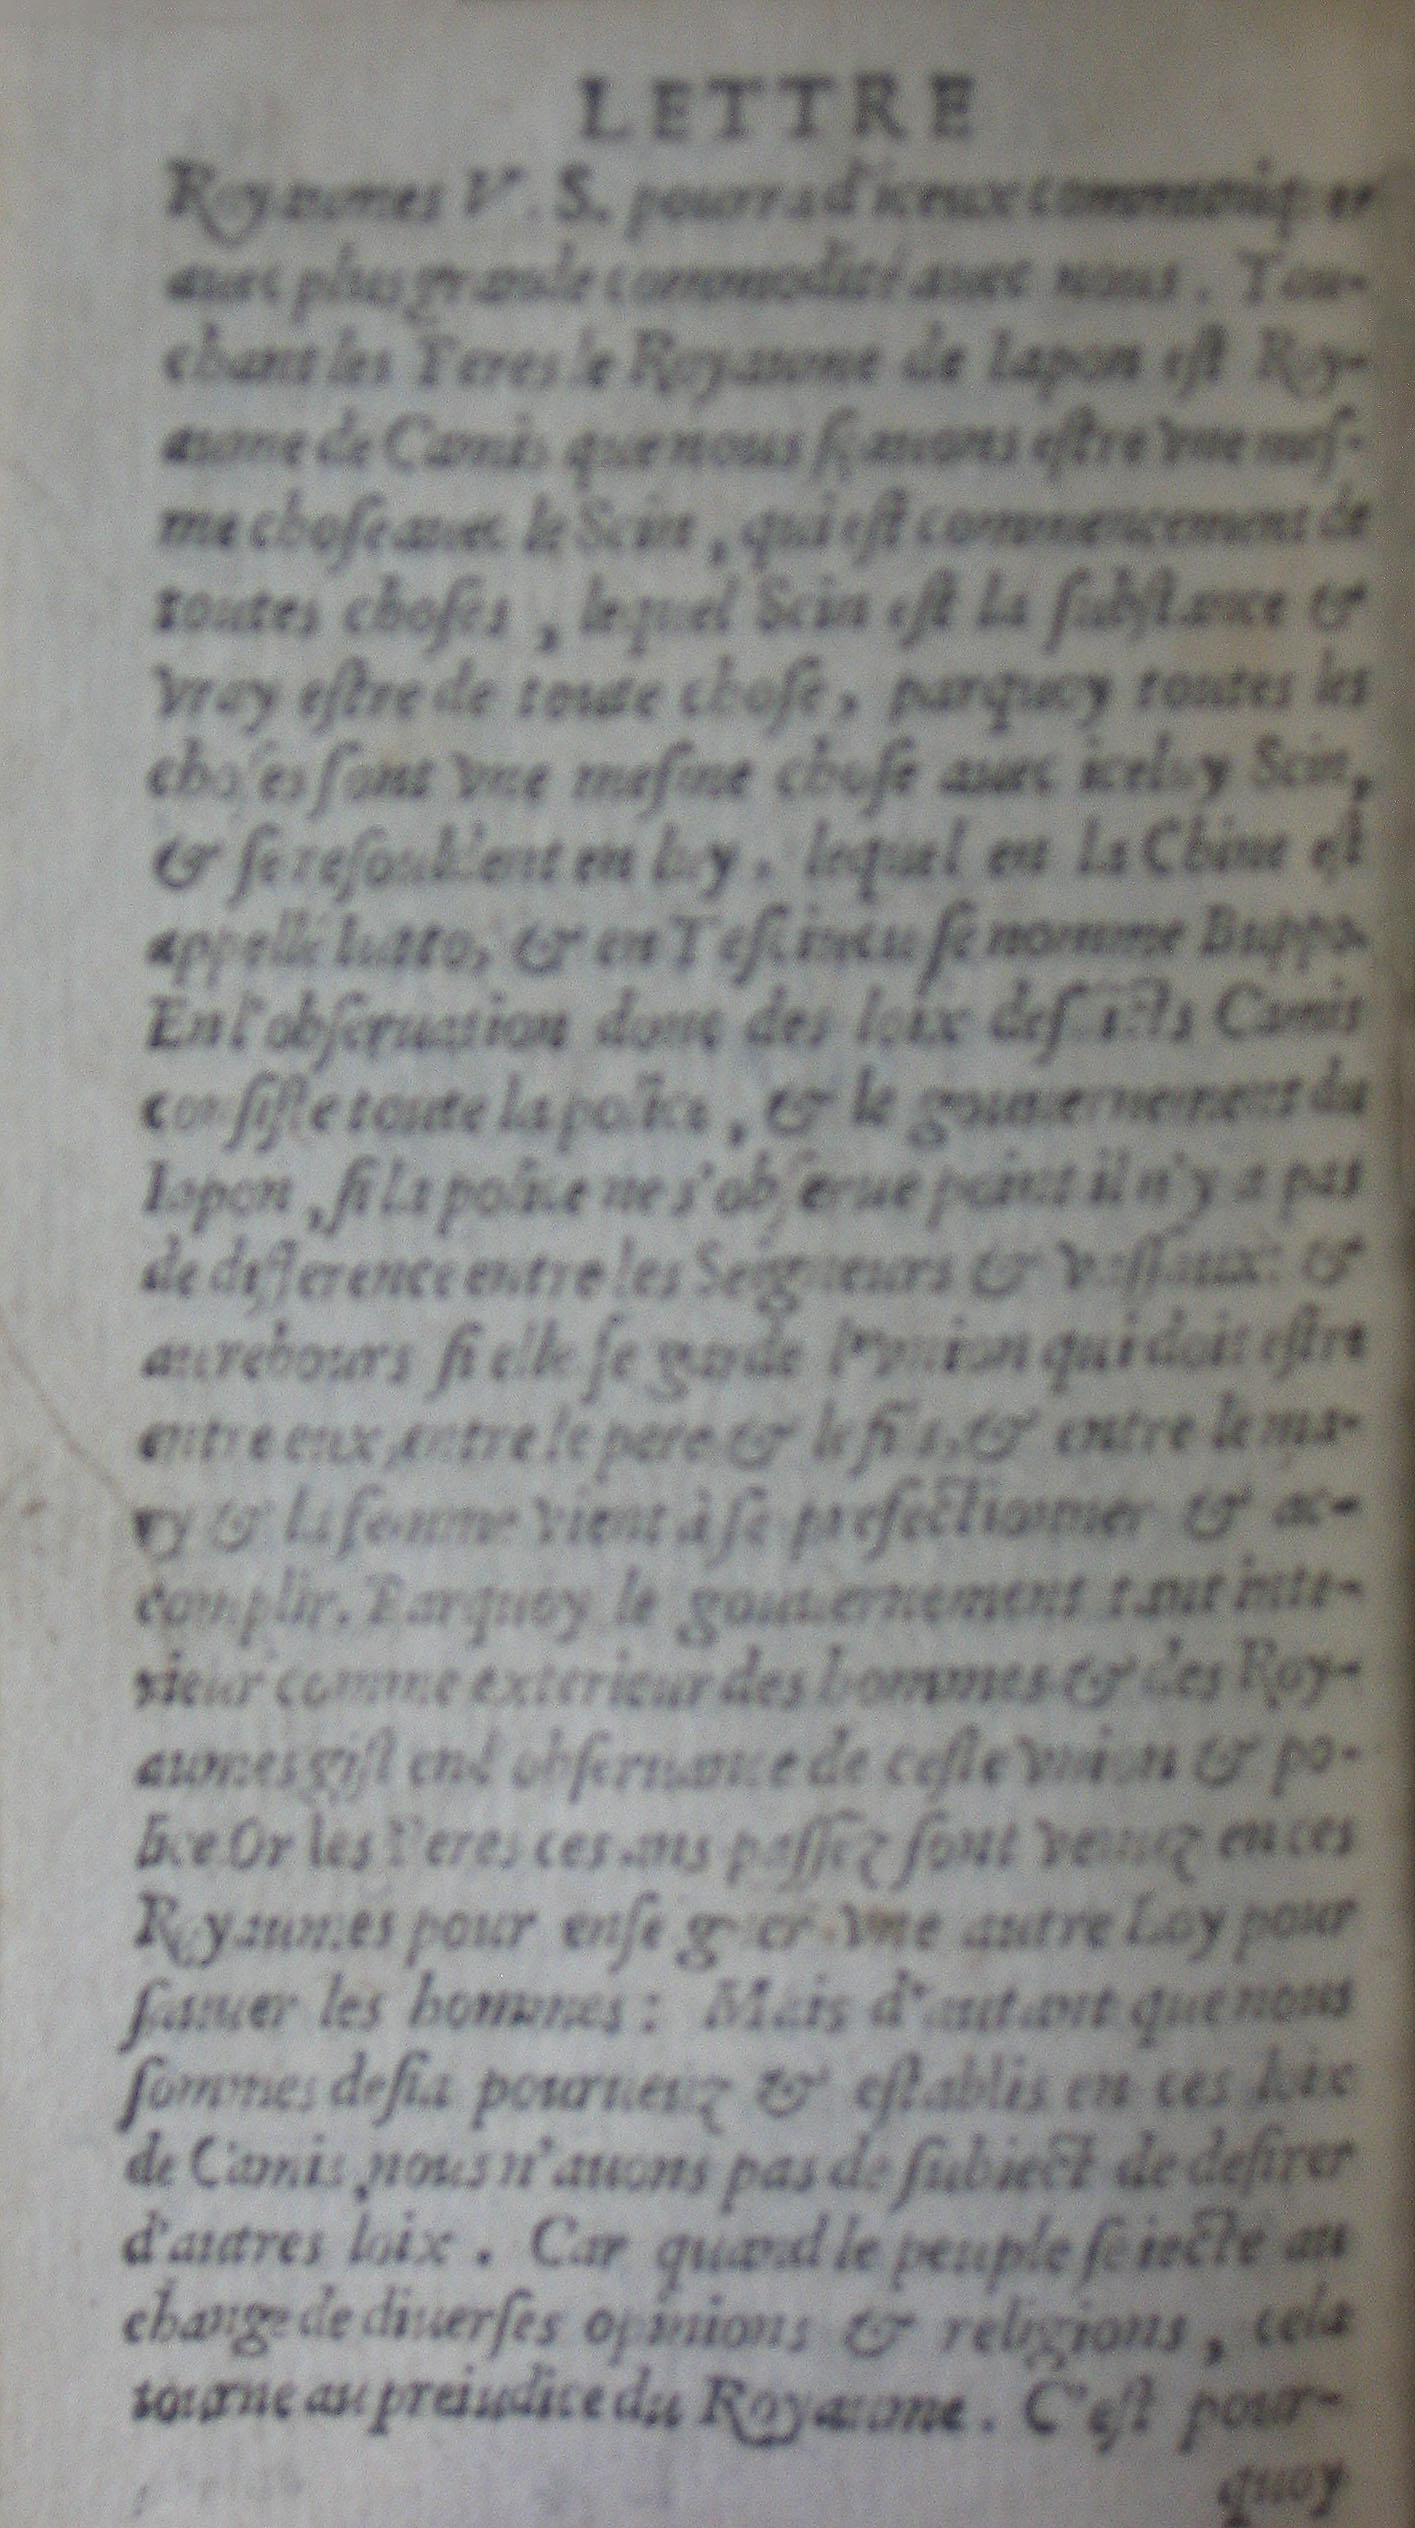 LETTRE
Royaumes V. S. pourra d'iceux communiq er
auec plus grande commodité auec nous. Tou-
chant les Peres le Royaume de Iapon est Roy-
aume de Camis que nous sçauons estre vne mes-
me chose auec le Scin, qui est commencement de
toutes choses, lequel Scin est la substance &
vray estre de toute chose, parquoy toutes les
choses sont vne mesme chose auec iceluy Scin,
& se resoudent en luy, lequel en la Chine est
appellé Iutto, & en se nomme Buppo.
En l'obseruation donc des loix desdicts Camis
consiste toute la police, & le gouuernement du
Iapon, si la police ne s'obserue point il n'y a pas
de difference entre les Seigneurs & vassaux: &
au rebours si elle se garde l'vnion qui doit estre
entre eux, entre le pere & le fils, & entre le ma-
ry & la femme vient à se prefectionner & ac-
complir. Parquoy le gouuernement tant inte-
rieur comme exterieur des hommes & des Roy-
aumes gist en l'obseruance de ceste vnion & po-
lice Or les Peres ces ans passez sont venuz en ces
Royaumes pour enseigner vne autre Loy pour
sauuer les hommes: Mais d'autant que nous
sommes desia pourueuz & establis en ces loix
de Camis, nous n'auons pas de subiect de desirer
d'autres loix. Car quand le peuple se iecte au
change de diuerses opinions & religions, cela
tourne au preiudice du Royaume. C'est pour-
quoy